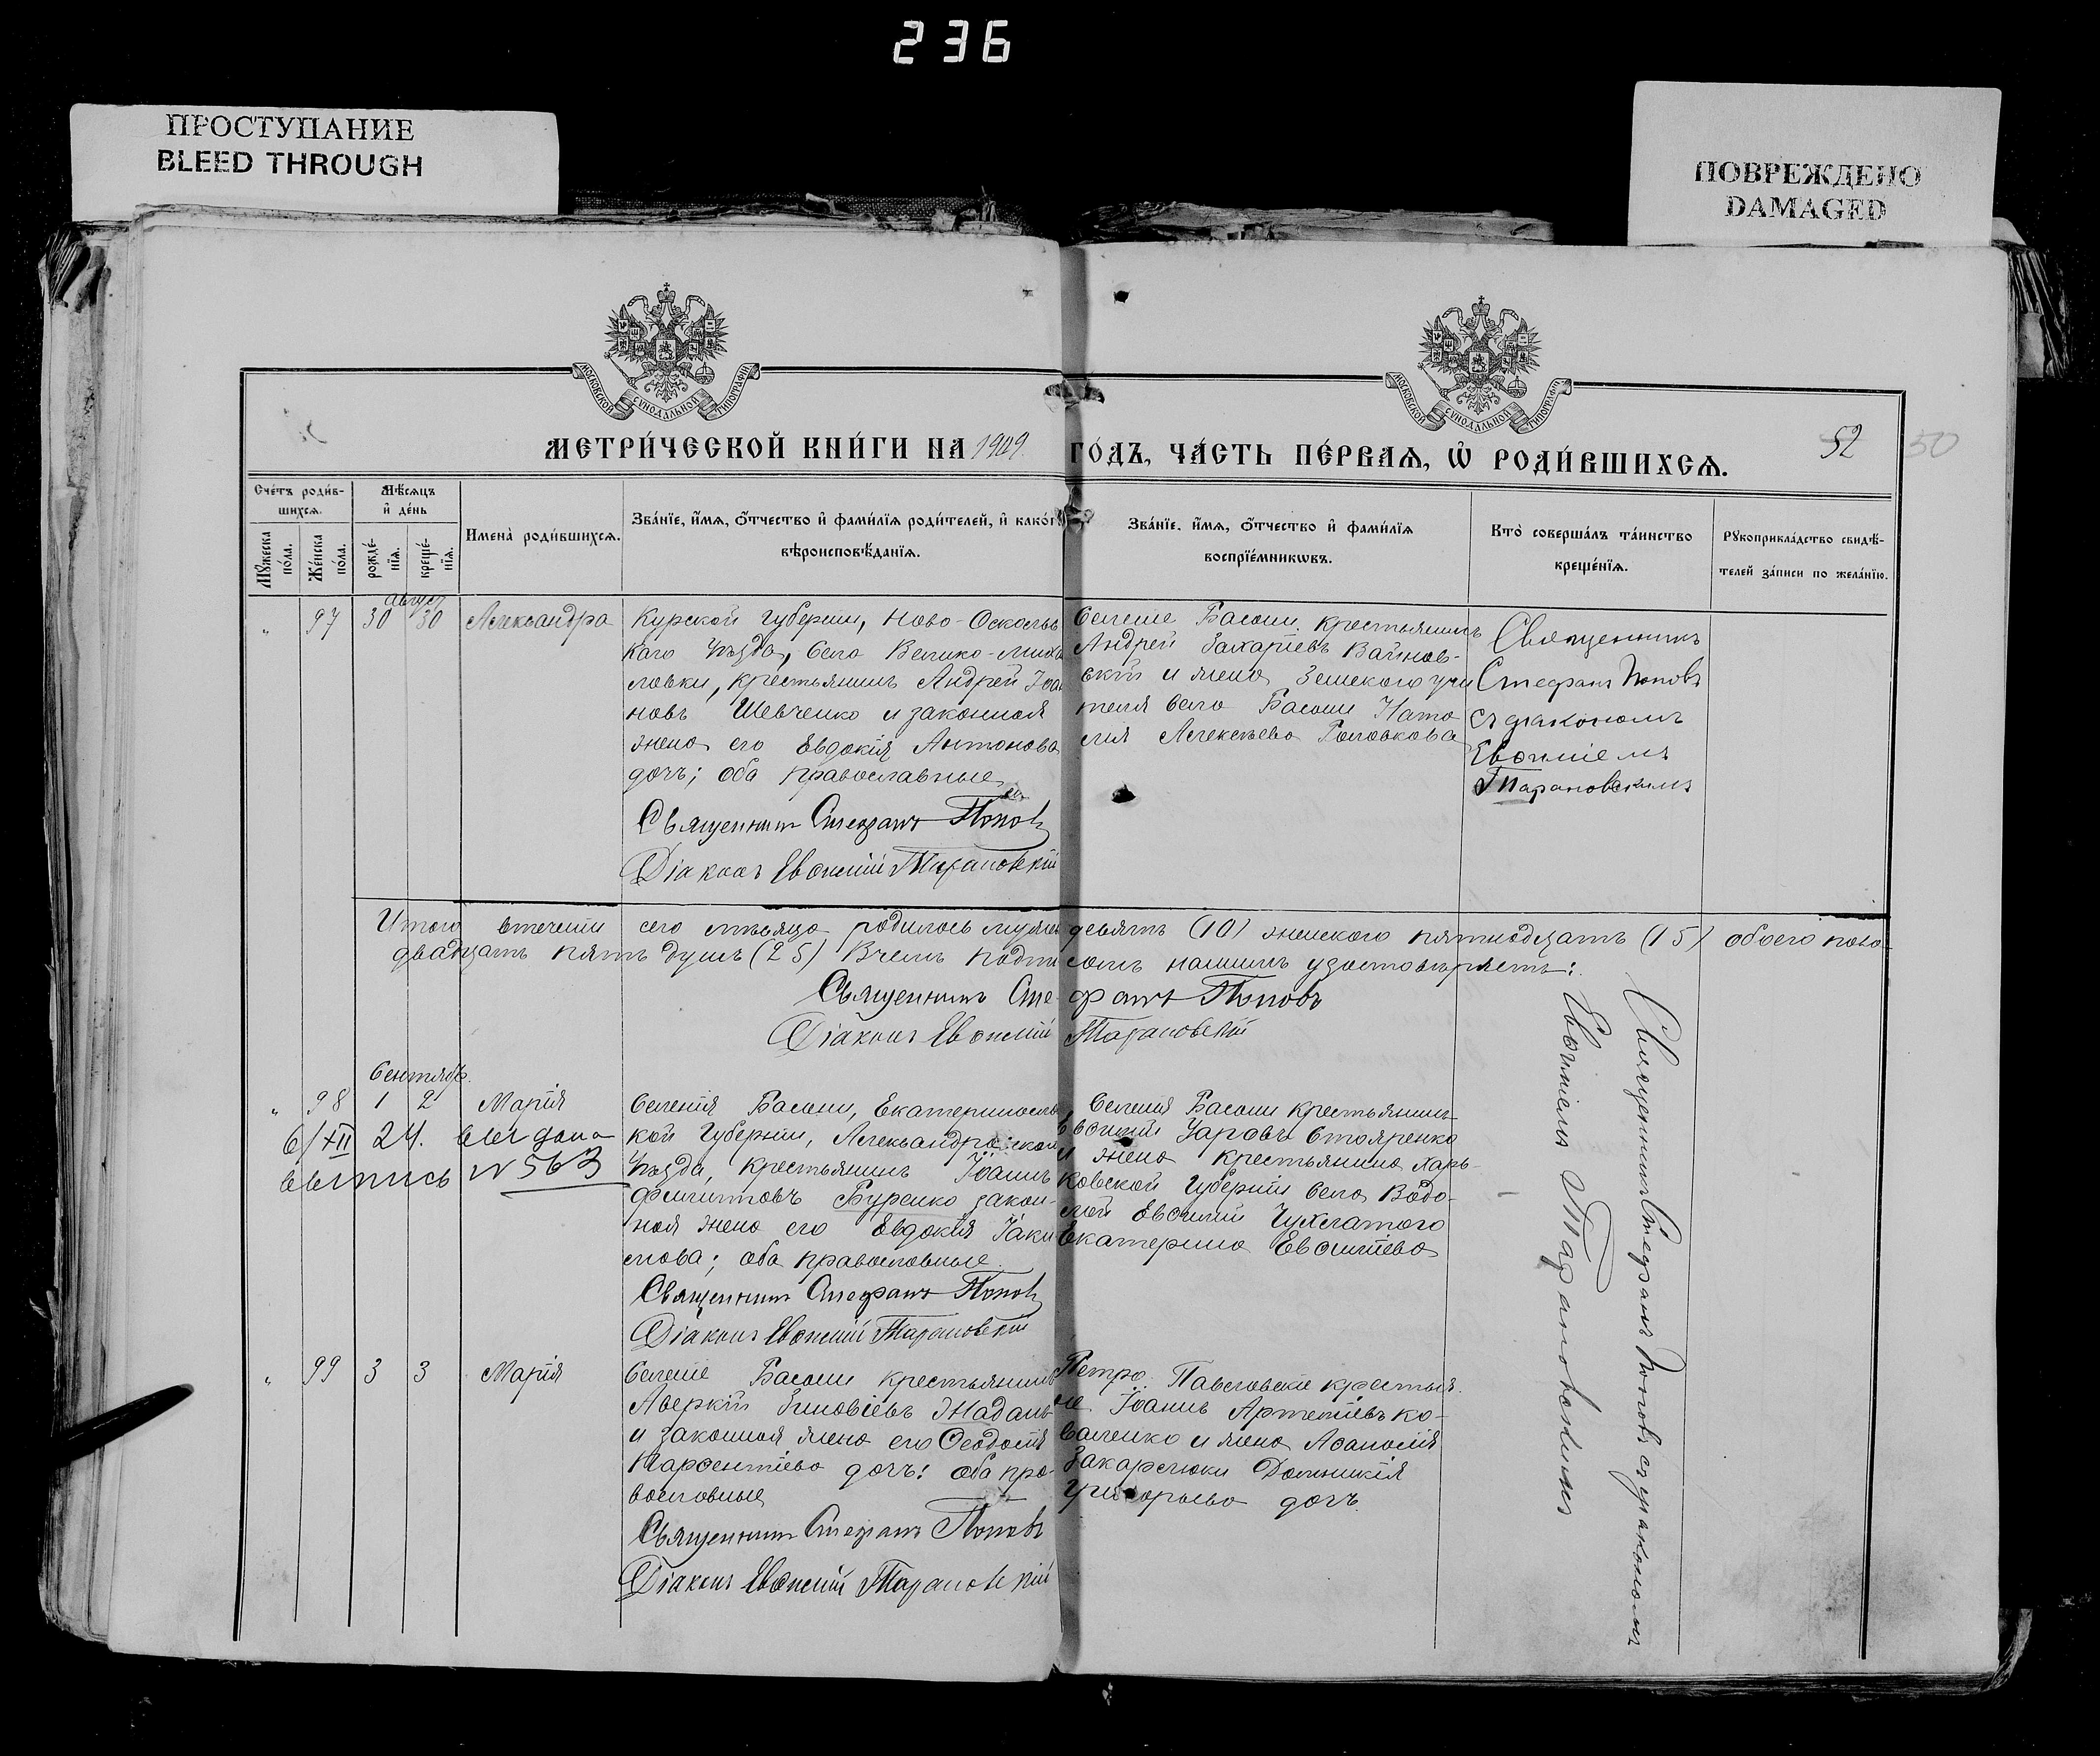 236
ПРОСТУПАНИЕ
BLEED THROUGH
ПОВРЕЖДЕНО
DAMAGED
МОСКОВСКОЙ СѴНОДАЛЬНОЙ ТИПОГРАФІИ
МОСКОВСКОЙ СѴНОДАЛЬНОЙ ТИПОГРАФІИ
МЕТРИ́ЧЕСКОЙ КНИ́ГИ НА 1909 ГО́ДЪ, ЧА́СТЬ ПЕ́РВАѦ, Ѡ҆ РОДИ́ВШИХСѦ.
52 50
Сче́тъ роди́в-
шихсѧ.
Мꙋ́жеска по́ла.
Же́нска по́ла.
Мѣ́сѧцъ и҆ де́нь
рожде́-нїѧ.
креще́-нїѧ.
И҆мена̀ роди́вшихсѧ.
Зва́нїе, и҆́мѧ, ѻ҆́тчество и҆ фами́лїѧ роди́телей, и҆ како́гѡ
вѣроисповѣ́данїѧ.
Зва́нїе. и҆́мѧ, ѻ҆́тчество и҆ фами́лїѧ
воспрїе́мникѡвъ.
Кто̀ соверша́лъ та́инство
креще́нїѧ.
Рꙋкоприкла́дство свидѣ́-
телей за́писи по жела́нїю.
Август
" 97 30 30 Александра
Курской губерніи, Ново-Осколь
каго уѣзда, села Велико-Миха
ловки, крестьянинъ Андрей Іоан
новъ Шевченко и законная
жена его Евдокія Антонова
дочь; оба православные
Священникъ Стефанъ Поповъ
Діаконъ Евѳимій Тарановскій
Селенія Басани крестьянинъ
Андрей Захаріевъ Войнов-
скій и жена Земскаго учи
теля села Басани Ната
лія Алексѣева Головкова
Священникъ
Стефанъ Поповъ
съ діакономъ
Евѳиміемъ
Тарановскимъ
Итого втеченіи сего мѣсяца родилось мужеск девять (10) женскаго пятнадцать (15) обоего пола
двадцать пять душъ (25) Въ чемъ подписомъ нашимъ удостовѣряемъ:
Священникъ Стефанъ Поповъ
Діаконъ Евѳимій Тарановскій
Сентябрь.
" 98 1 2 Марія
6/XII 24. выдана
выпись № 563
Селенія Басани, Екатеринослав
кой губерніи, Александровскаго
уѣзда, крестьянинъ Іоаннъ
Филипповъ Буренко закон-
ная жена его Евдокія Іаки
мова; оба православные.
Священникъ Стефанъ Поповъ
Діаконъ Евѳимій Тарановскій
Селенія Басани крестьянинъ
Евѳимій Уаровъ Столяренко
и жена крестьянина Харь-
ковской губерніи села Водо-
лой Евѳимія Чухлатого
Екатерина Евѳиміева
Священникъ Стефанъ Поповъ съ діакономъ
Евѳиміемъ Тарановскимъ
" 99 3 3 Марія
Селенія Басани крестьянинъ
Аверкій Зиновіевъ Жаданъ
и законная жена его Ѳеодосія
Парѳентіева дочь: оба пра-
вославные
Священникъ Стефанъ Поповъ
Діаконъ Евѳимій Тарановскій
Петро-Павловскіе крестья-
не Іоаннъ Артеміевъ Ко-
валенко и жена Аѳанасія
Закарлюки Домникія
Григорьева дочь